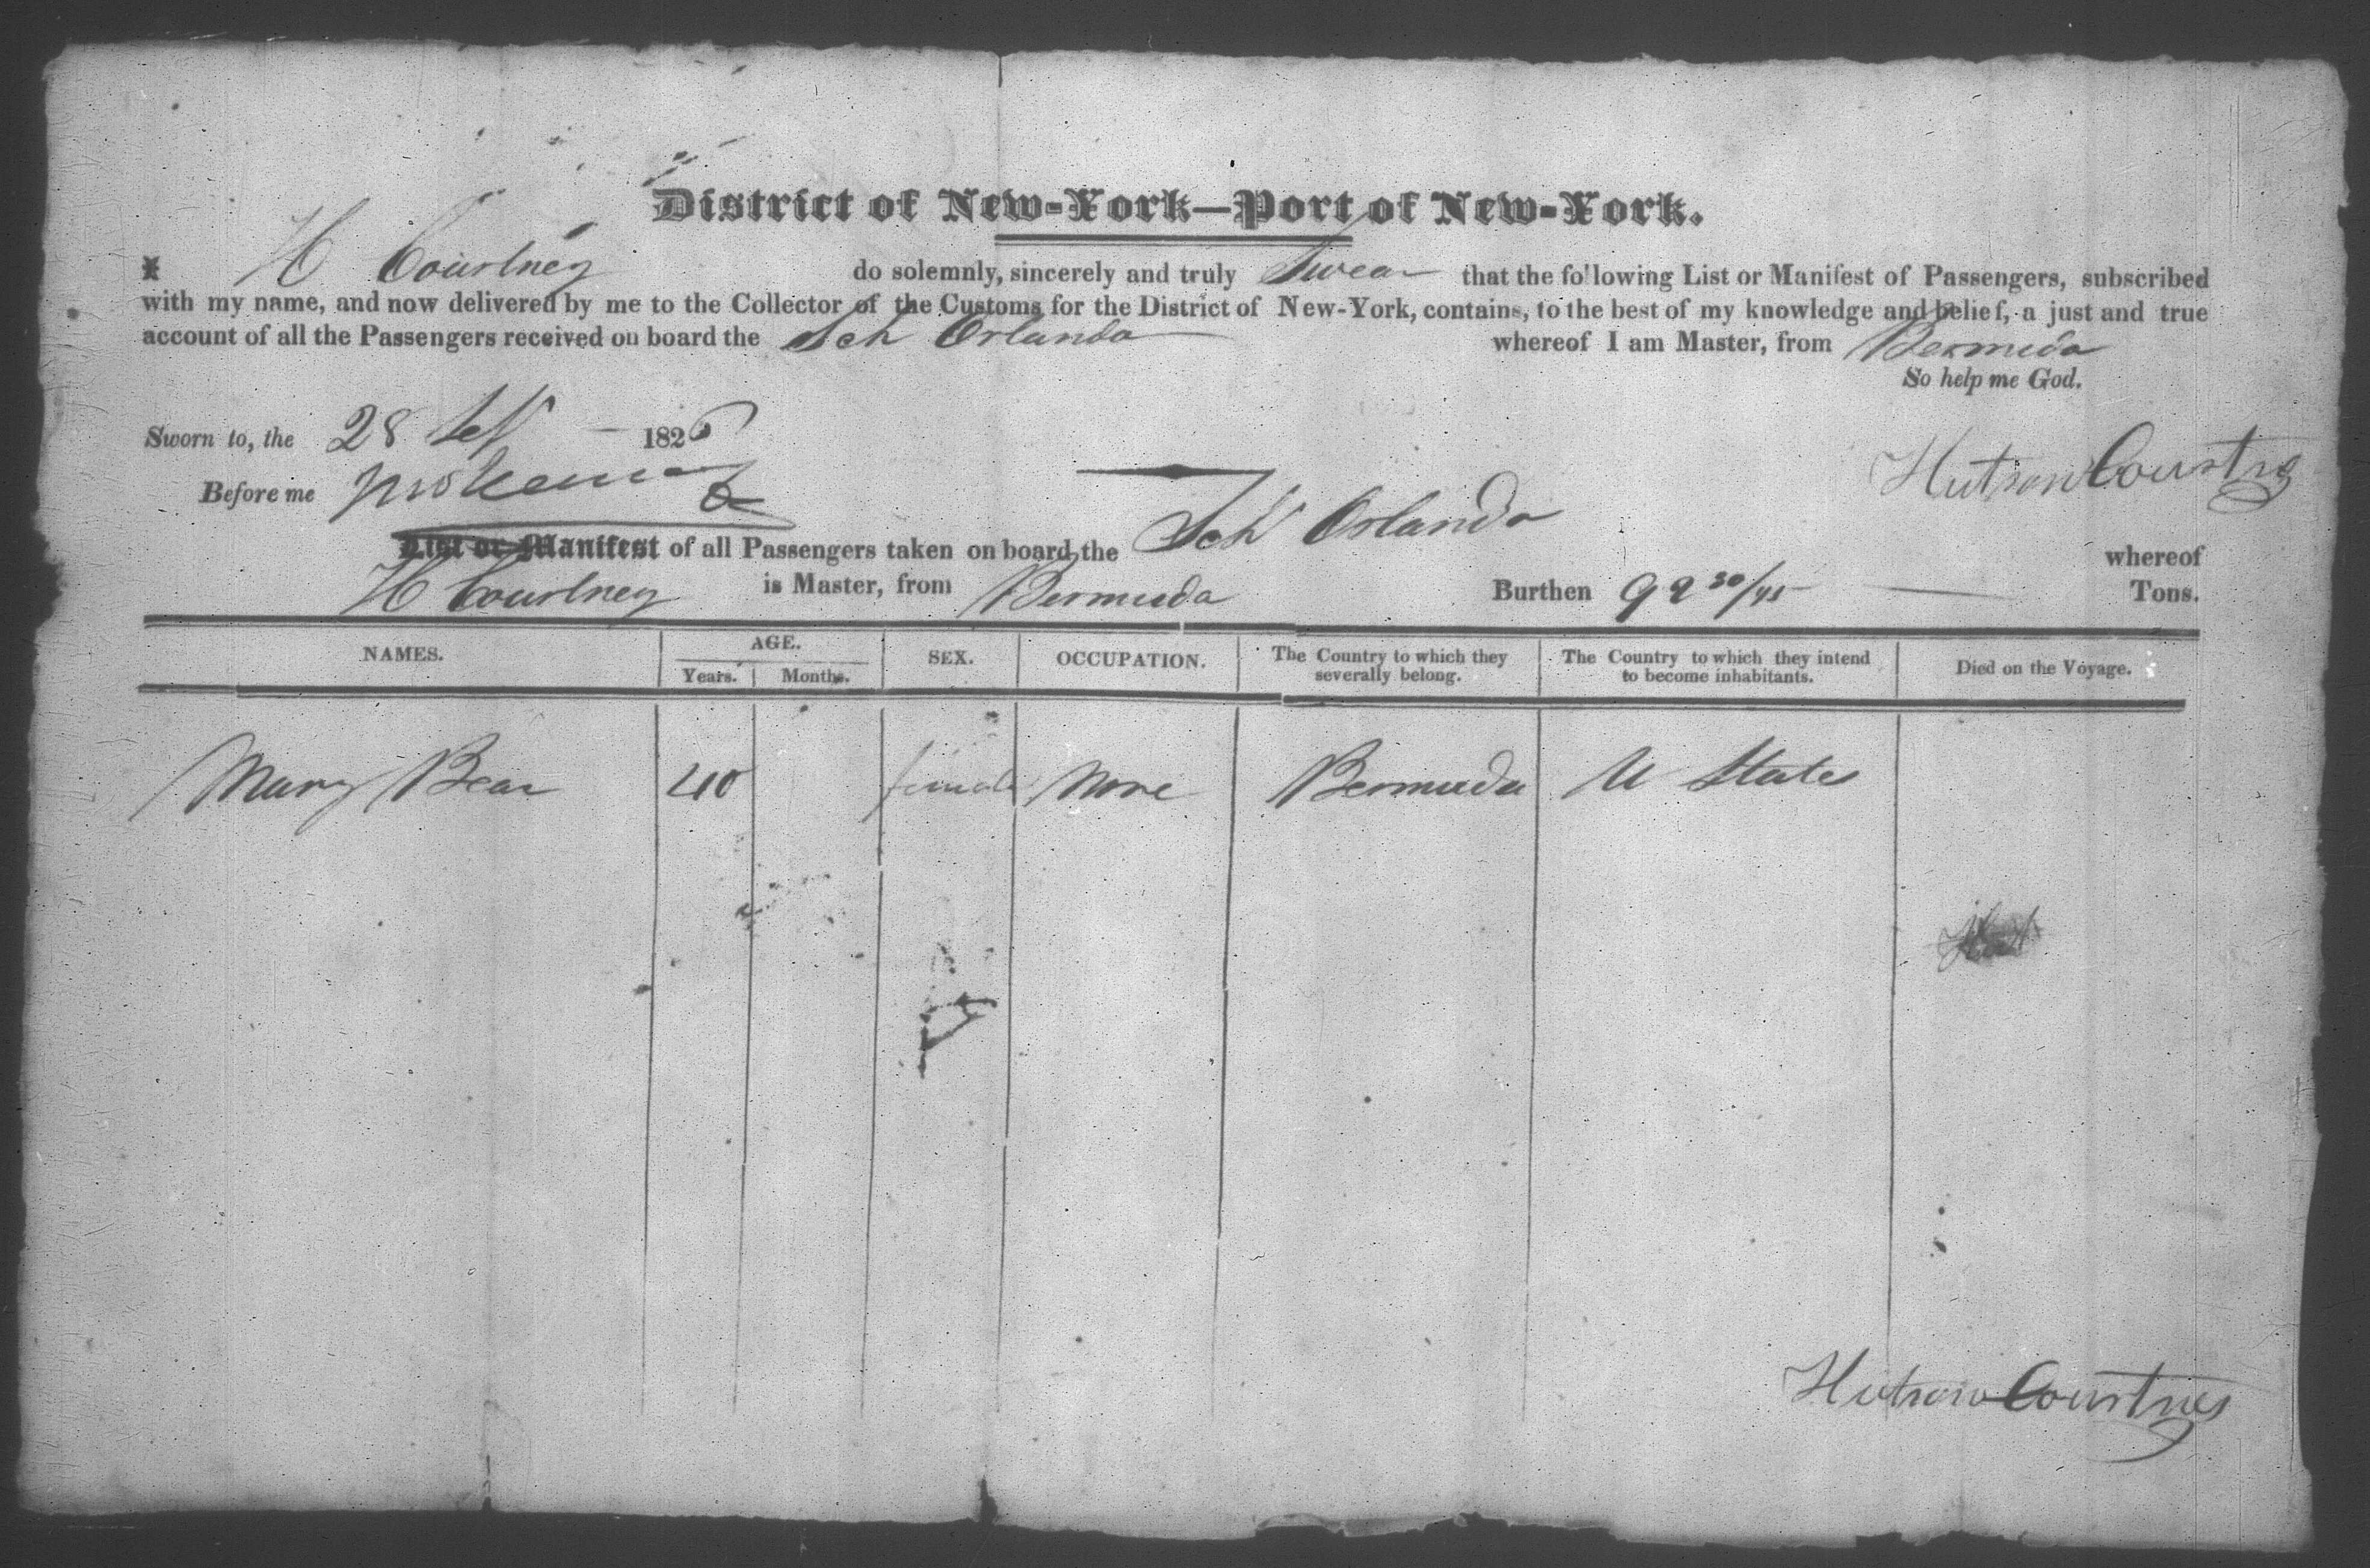 District of New-York—Port of New-York.
I H Courtney do solemnly, sincerely and truly Swear that the following List or Manifest of Passengers, subscribed
with my name, and now delivered by me to the Collector of the Customs for the District of New-York, contains, to the best of my knowledge and belief, a just and true
account of all the Passengers received on board the Sch Orlando whereof I am Master, from Bermuda
So help me God.
Sworn to, the 28 Sep 1826
Before me
Hutson Courtney
List or Manifest of all Passengers taken on board the Sch Orlando whereof
H Courtney is Master, from Bermuda Burthen 92 30/95 Tons.
NAMES. AGE. SEX. OCCUPATION. The Country to which they severally belong. The Country to which they intend to become inhabitants. Died on the Voyage.
Years. Months.
Mary Bear 40 female None Bermuda U States
Hutson Courtney